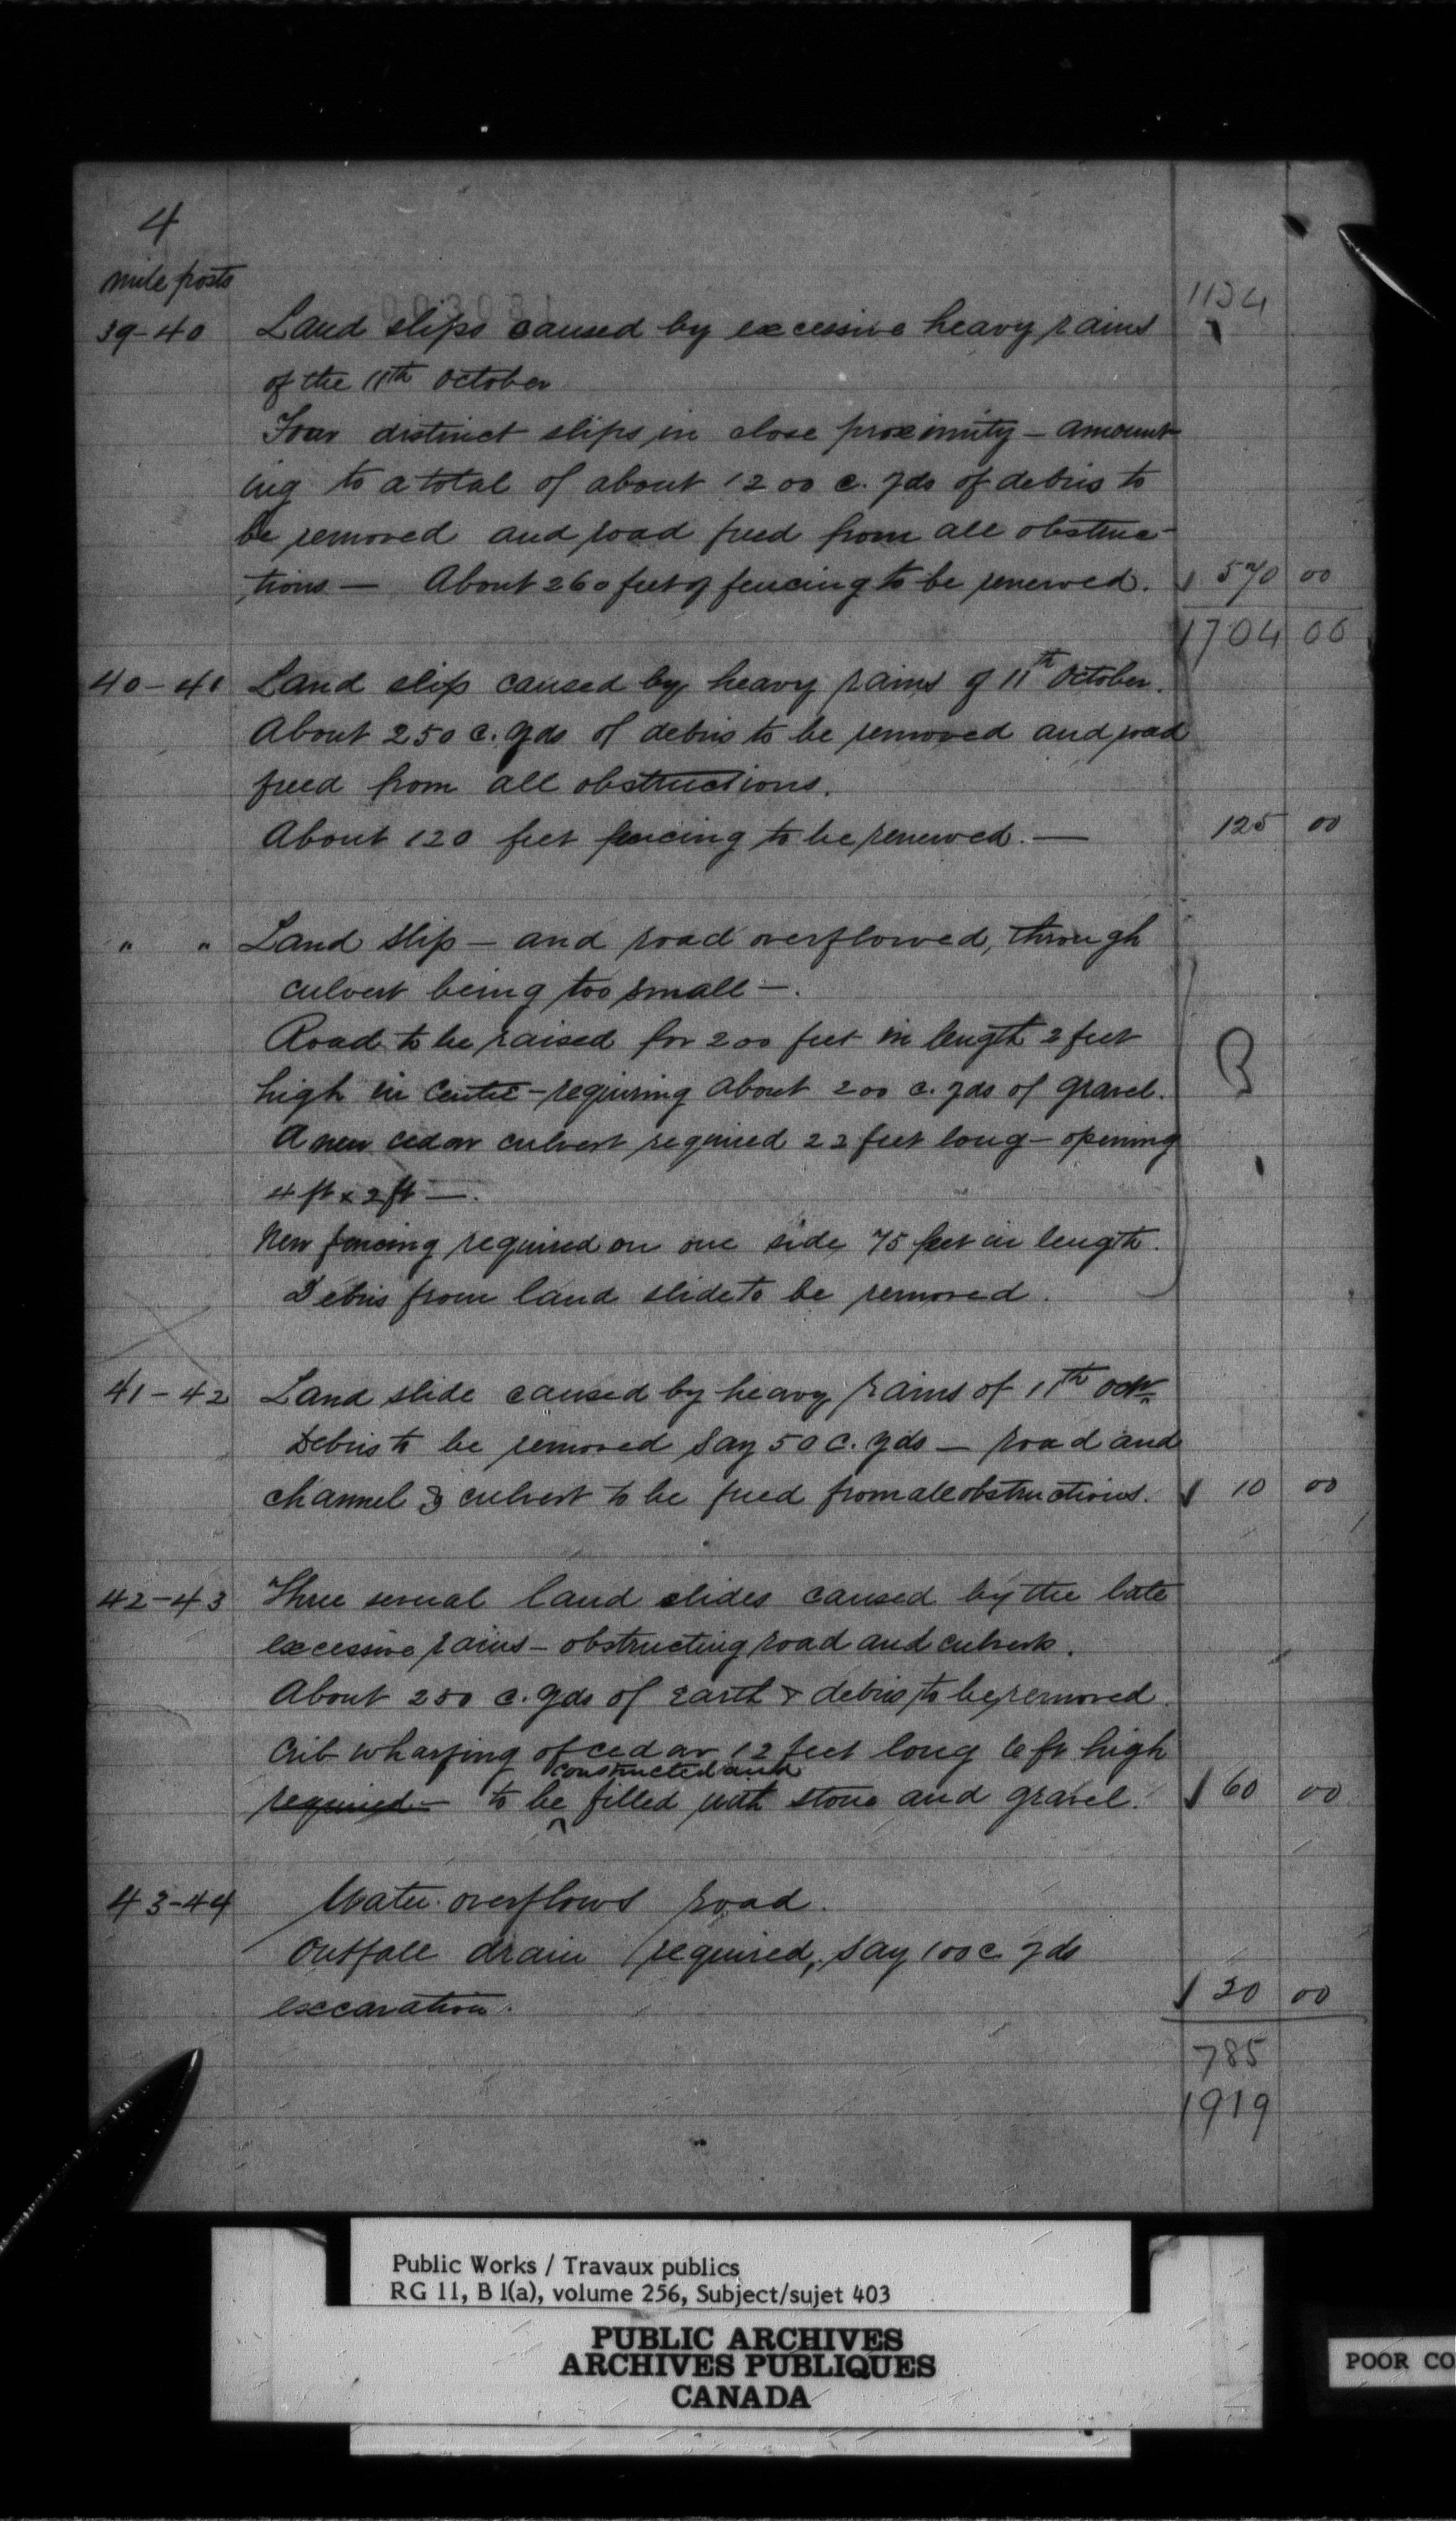 4
mile posts
1134
39-40 Land slips caused by excessive heavy rains
of the 11th October
Four distinct slips in close proximity - amount
ing to a total of about 1200 c. yds of debris to
be removed and road freed from all obstruc-
tions - About 260 feet of fencing to be renewed. 570 00
1704 00
40-41 Land slip caused by heavy rains of 11th October.
About 250 c. yds of debris to be removed and road
freed from all obstructions.
About 120 feet fencing to be renewed. — 125 00
" " Land slip - and road overflowed, through
culvert being too small -.
Road to be raised for 200 feet in length 2 feet
high in Centre - requiring about 200 c. yds of gravel.
A new cedar culvert required 22 feet long - opening
4 ft x 2 ft —.
New fencing required on one side 75 feet in length.
Debris from land slide to be removed.
41-42 Land slide caused by heavy rains of 11th Octr.
Debris to be removed say 50 c. yds - road and
channel & culvert to be freed from all obstructions. 10 00
42-43 Three several land slides caused by the late
excessive rains - obstructing road and culverts.
About 250 c. yds of earth & debris to be removed.
Crib wharfing of cedar 12 feet long 6 ft high
constructed and
required - to be filled with stone and gravel. 60 00
43-44 Water overflows road.
Outfall drain required, say 100 c yds
excavation. 20 00
785
1919
Public Works / Travaux publics
RG 11, B 1(a), volume 256, Subject/sujet 403
PUBLIC ARCHIVES
ARCHIVES PUBLIQUES
CANADA
POOR CO